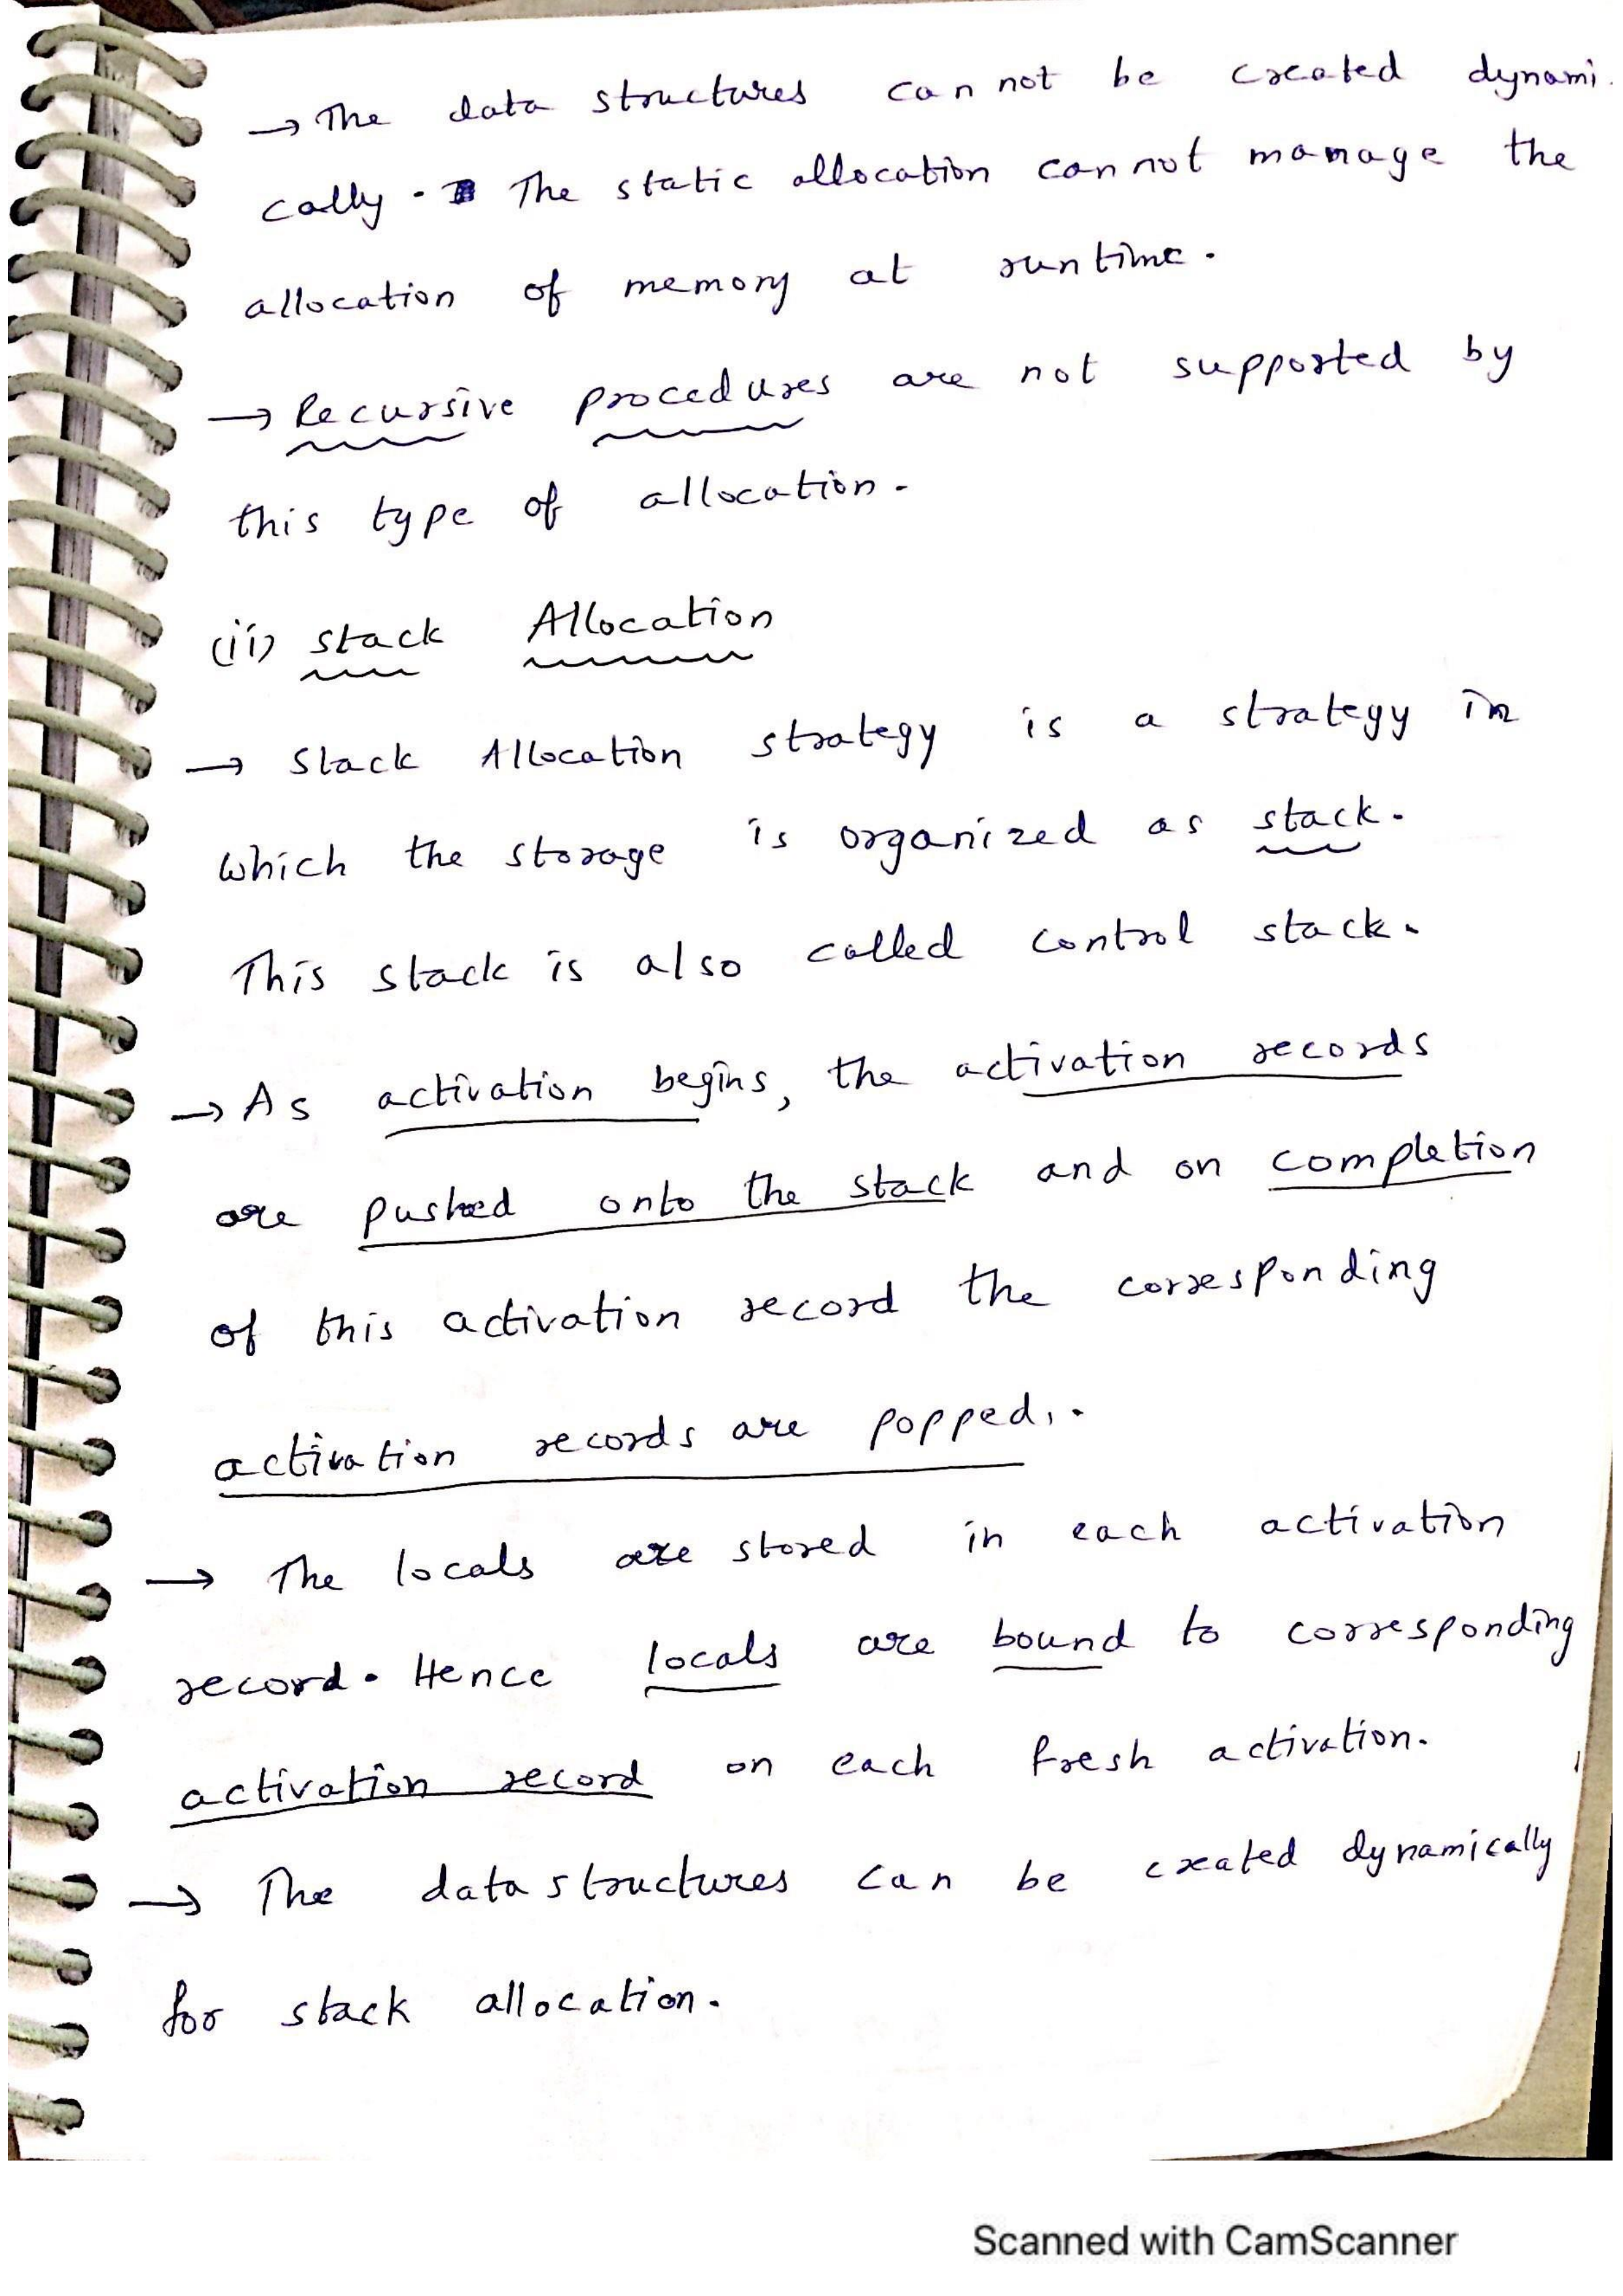 → The data structures can not be created dynami-
cally. The static allocation cannot manage the
allocation of memory at runtime.
→ Recursive procedures are not supported by
this type of allocation.
(ii) stack Allocation
→ Stack Allocation strategy is a strategy in
which the storage is organized as stack.
This stack is also called control stack.
→ As activation begins, the activation records
are pushed onto the stack and on completion
of this activation record the corresponding
activation records are popped.
→ The locals are stored in each activation
record. Hence locals are bound to corresponding
activation record on each fresh activation.
→ The data structures can be created dynamically
for stack allocation.
Scanned with CamScanner